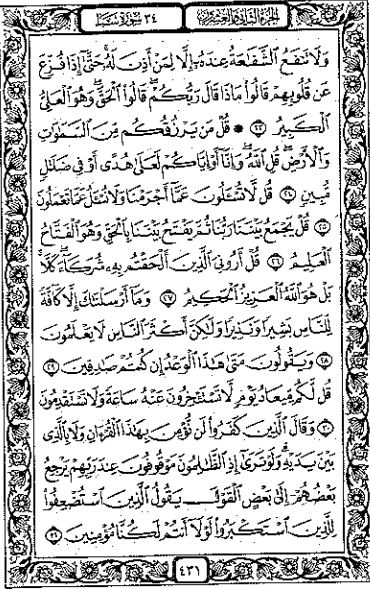 الجزء الثاني والعشرون ٣٤ سورة سبإ
وَلَا تَنفَعُ ٱلشَّفَٰعَةُ عِندَهُۥٓ إِلَّا لِمَنْ أَذِنَ لَهُۥ حَتَّىٰٓ إِذَا فُزِّعَ
عَن قُلُوبِهِمْ قَالُوا۟ مَاذَا قَالَ رَبُّكُمْ قَالُوا۟ ٱلْحَقَّ وَهُوَ ٱلْعَلِىُّ
ٱلْكَبِيرُ ۝٢٣ ۞ قُلْ مَن يَرْزُقُكُم مِّنَ ٱلسَّمَٰوَٰتِ
وَٱلْأَرْضِ قُلِ ٱللَّهُ وَإِنَّآ أَوْ إِيَّاكُمْ لَعَلَىٰ هُدًى أَوْ فِى ضَلَٰلٍ
مُّبِينٍ ۝٢٤ قُل لَّا تُسْـَٔلُونَ عَمَّآ أَجْرَمْنَا وَلَا نُسْـَٔلُ عَمَّا تَعْمَلُونَ
۝٢٥ قُلْ يَجْمَعُ بَيْنَنَا رَبُّنَا ثُمَّ يَفْتَحُ بَيْنَنَا بِٱلْحَقِّ وَهُوَ ٱلْفَتَّاحُ
ٱلْعَلِيمُ ۝٢٦ قُلْ أَرُونِىَ ٱلَّذِينَ أَلْحَقْتُم بِهِۦ شُرَكَآءَ كَلَّا
بَلْ هُوَ ٱللَّهُ ٱلْعَزِيزُ ٱلْحَكِيمُ ۝٢٧ وَمَآ أَرْسَلْنَٰكَ إِلَّا كَآفَّةً
لِّلنَّاسِ بَشِيرًا وَنَذِيرًا وَلَٰكِنَّ أَكْثَرَ ٱلنَّاسِ لَا يَعْلَمُونَ
۝٢٨ وَيَقُولُونَ مَتَىٰ هَٰذَا ٱلْوَعْدُ إِن كُنتُمْ صَٰدِقِينَ ۝٢٩
قُل لَّكُم مِّيعَادُ يَوْمٍ لَّا تَسْتَـْٔخِرُونَ عَنْهُ سَاعَةً وَلَا تَسْتَقْدِمُونَ
۝٣٠ وَقَالَ ٱلَّذِينَ كَفَرُوا۟ لَن نُّؤْمِنَ بِهَٰذَا ٱلْقُرْءَانِ وَلَا بِٱلَّذِى
بَيْنَ يَدَيْهِ وَلَوْ تَرَىٰٓ إِذِ ٱلظَّٰلِمُونَ مَوْقُوفُونَ عِندَ رَبِّهِمْ يَرْجِعُ
بَعْضُهُمْ إِلَىٰ بَعْضٍ ٱلْقَوْلَ يَقُولُ ٱلَّذِينَ ٱسْتُضْعِفُوا۟
لِلَّذِينَ ٱسْتَكْبَرُوا۟ لَوْلَآ أَنتُمْ لَكُنَّا مُؤْمِنِينَ ۝٣١
٤٣١